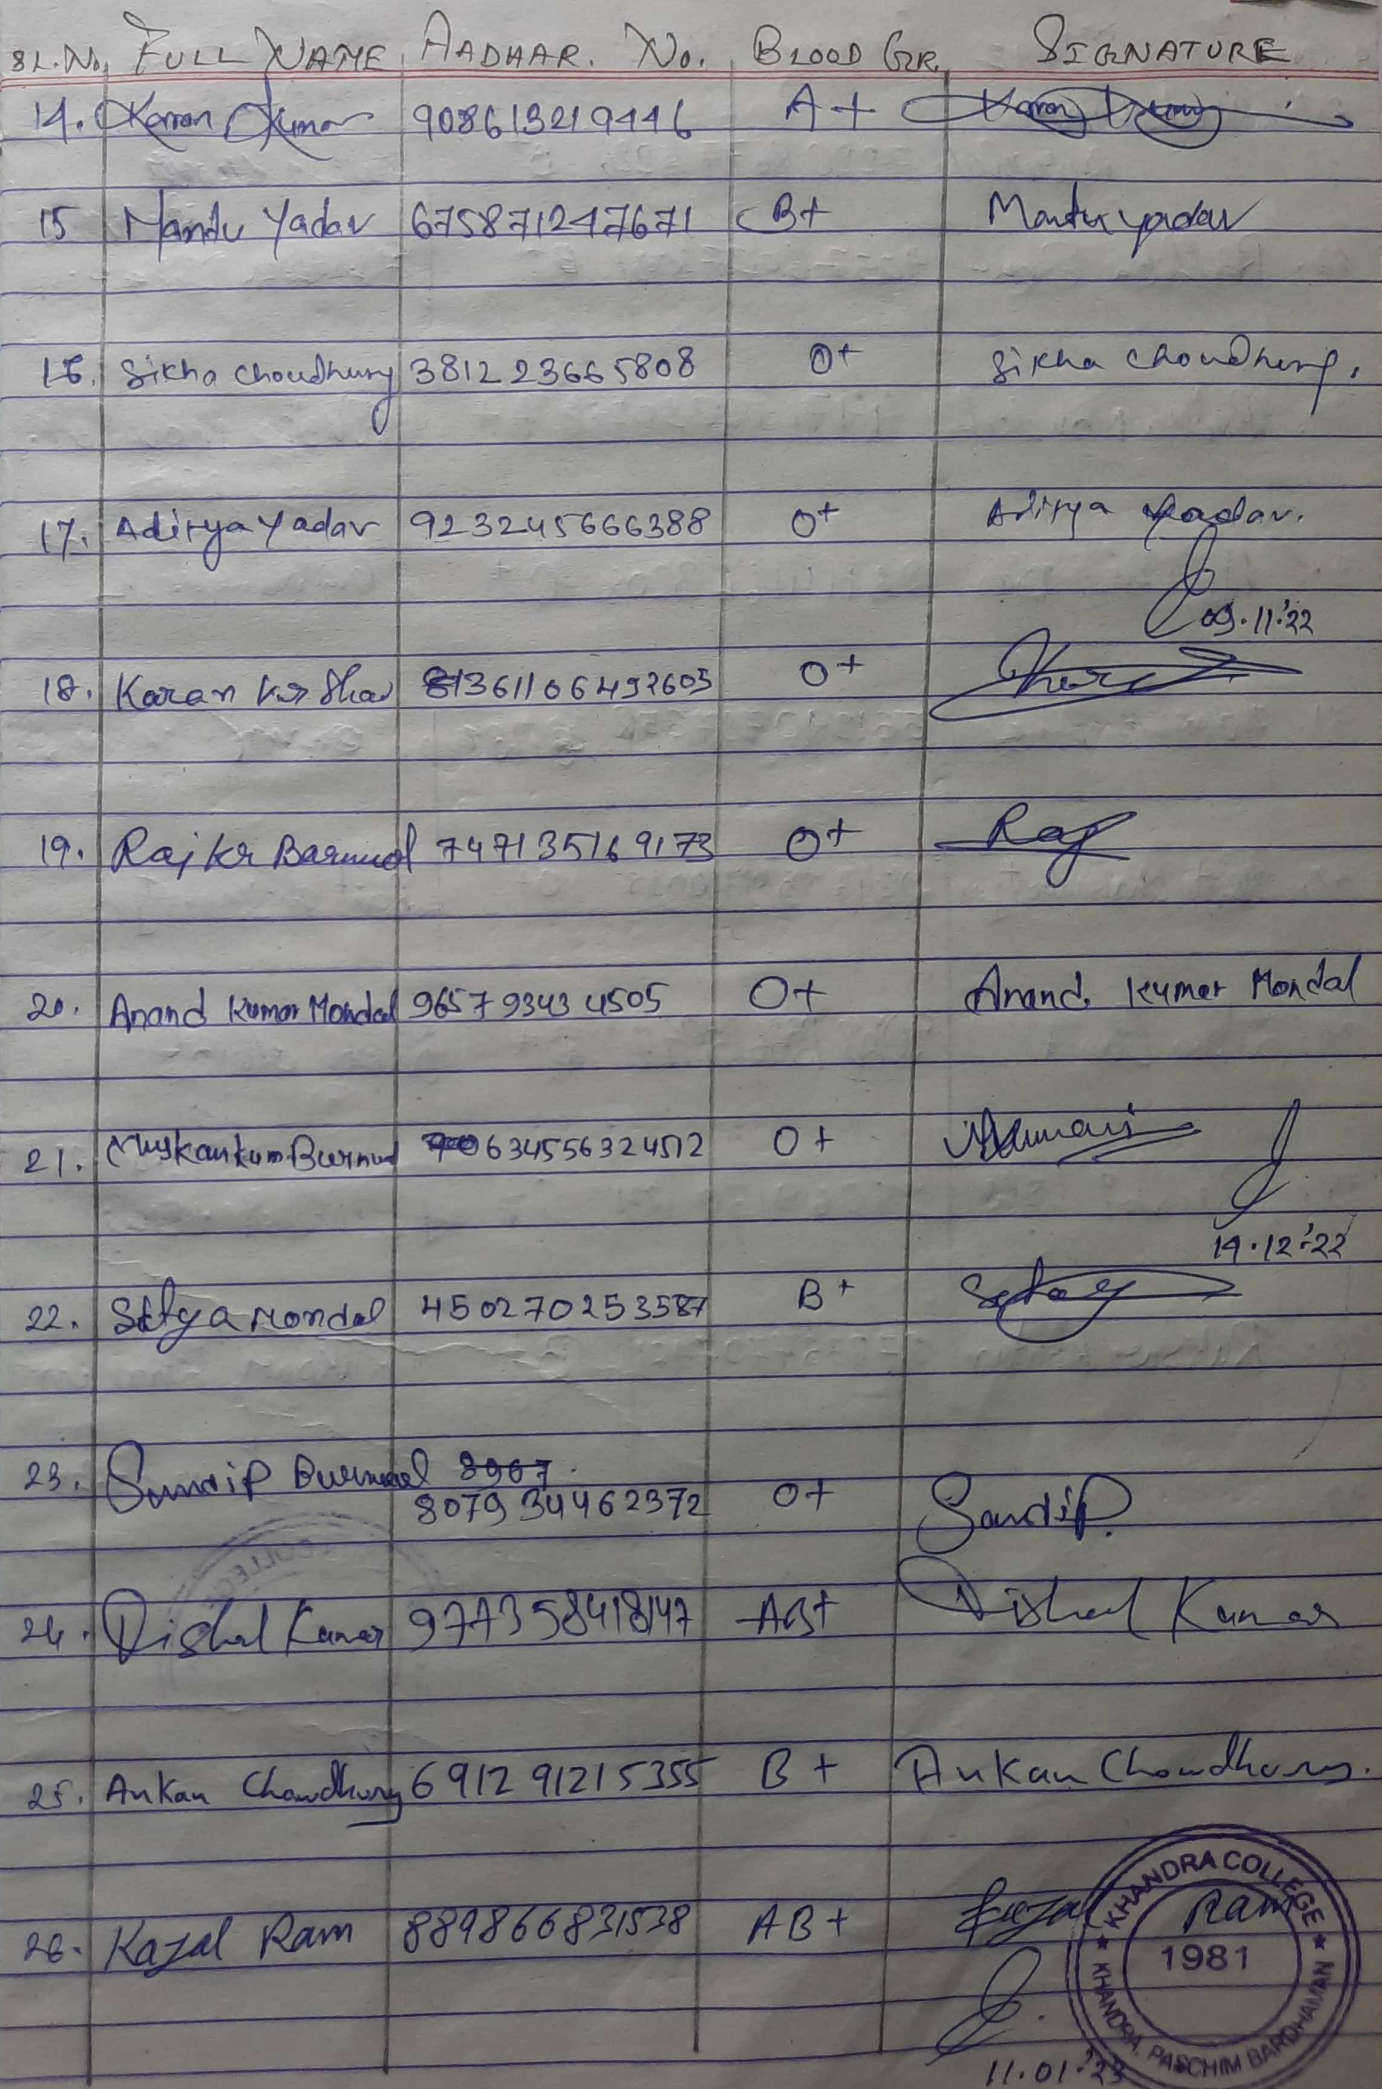 SL.No. FULL NAME AADHAR. No. BLOOD GR. SIGNATURE
14. Karan Kumar 908613219446 A+ Karan Kumar
15 Mandu Yadav 675871247671 B+ Mantu yadav
16. Sikha Choudhury 381223665808 O+ Sikha Choudhury.
17. Aditya Yadav 923245666388 O+ Aditya Yadav.
09.11.'22
18. Karan Kr Shaw O+
19. Raj Kr Barnwal 747135169173 O+ Raj
20. Anand Kumar Mondal 965793434505 O+ Anand Kumar Mondal
21. Muskan kum Burnwal 634556324512 O+ MKumari
14.12.'22
22. Satya Mondal 450270253587 B+ Satya
23. Sandip Burnwal 8967
807934462372 O+ Sandip.
24. Vishal Kumar 977358418147 AB+ Vishal Kumar
25. Ankan Chowdhury 691291215355 B+ Ankan Chowdhury.
26. Kajal Ram 889866831538 AB+ Kajal Ram
KHANDRA COLLEGE
1981
KHANDRA, PASCHIM BARDHAMAN
11.01.'23